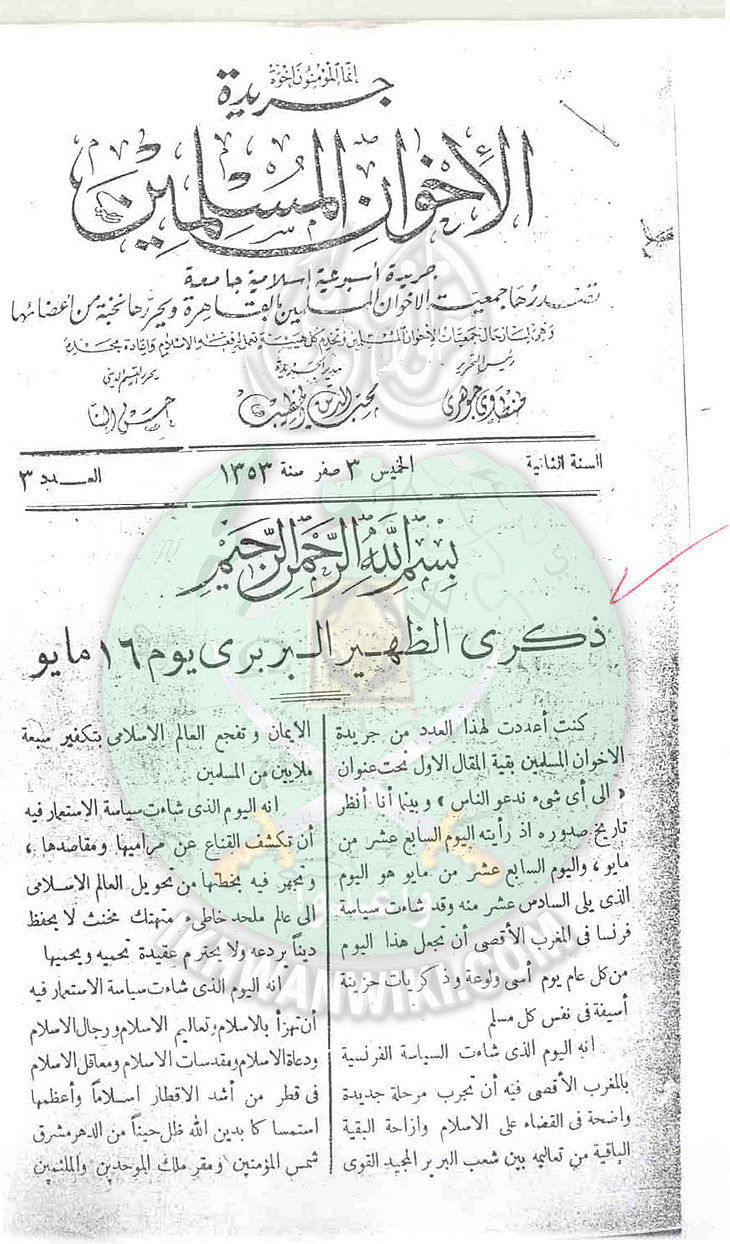 إنما المؤمنون إخوة
جريدة
الإخوان المسلمين
جريدة أسبوعية إسلامية جامعة
تصدرها جمعية الاخوان المسلمين بالقاهرة ويحررها نخبة من أعضائها
وهى لسان حال جمعيات الاخوان المسلمين وتخدم كل هيئة تعمل لرفعة الاسلام وإعادة مجده
رئيس التحرير مدير الجريدة يحرر القسم الدينى
طنطاوى جوهرى محب الدين الخطيب حسن البنا
السنة الثانية الخميس ٣ صفر سنة ١٣٥٣ العـدد ٣
بسم الله الرحمن الرحيم
ذكرى الظهير البربرى يوم ١٦ مايو
كنت أعددت لهذا العدد من جريدة
الاخوان المسلمين بقية المقال الاول تحت عنوان
« الى أى شىء ندعو الناس » وبينما أنا أنظر
تاريخ صدوره اذ رأيته اليوم السابع عشر من
مايو ، واليوم السابع عشر من مايو هو اليوم
الذى يلى السادس عشر منه وقد شاءت سياسة
فرنسا فى المغرب الأقصى أن تجعل هذا اليوم
من كل عام يوم أسى ولوعة وذكريات حزينة
أسيفة فى نفس كل مسلم
انه اليوم الذى شاءت السياسة الفرنسية
بالمغرب الأقصى فيه أن تجرب مرحلة جديدة
واضحة فى القضاء على الاسلام وازاحة البقية
الباقية من تعاليمه بين شعب البربر المجيد القوى
الايمان وتفجع العالم الاسلامى بتكفير سبعة
ملايين من المسلمين
انه اليوم الذى شاءت سياسة الاستعمار فيه
أن تكشف القناع عن مراميها ومقاصدها ،
وتجهر فيه بخطتها من تحويل العالم الاسلامى
الى عالم ملحد خاطىء متهتك مخنث لا يحفظ
ديناً يردعه ولا يحترم عقيدة تحميه ويحميها
انه اليوم الذى شاءت سياسة الاستعمار فيه
أن تهزأ بالاسلام وتعاليم الاسلام ورجال الاسلام
ودعاة الاسلام ومقدسات الاسلام ومعاقل الاسلام
فى قطر من أشد الاقطار اسلاماً وأعظمها
استمساكا بدين الله ظل حيناً من الدهر مشرق
شمس المؤمنين ومقر ملك الموحدين والملثمين
وأعدوا
IKHWANWIKI.COM